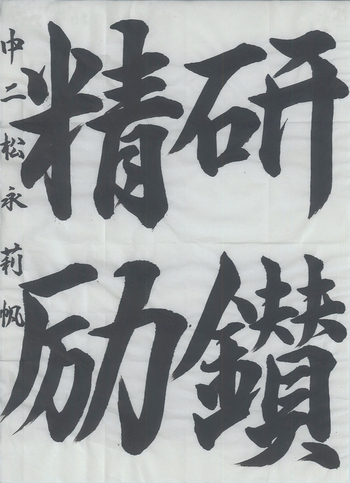 研鑚
精励
中二松永莉帆